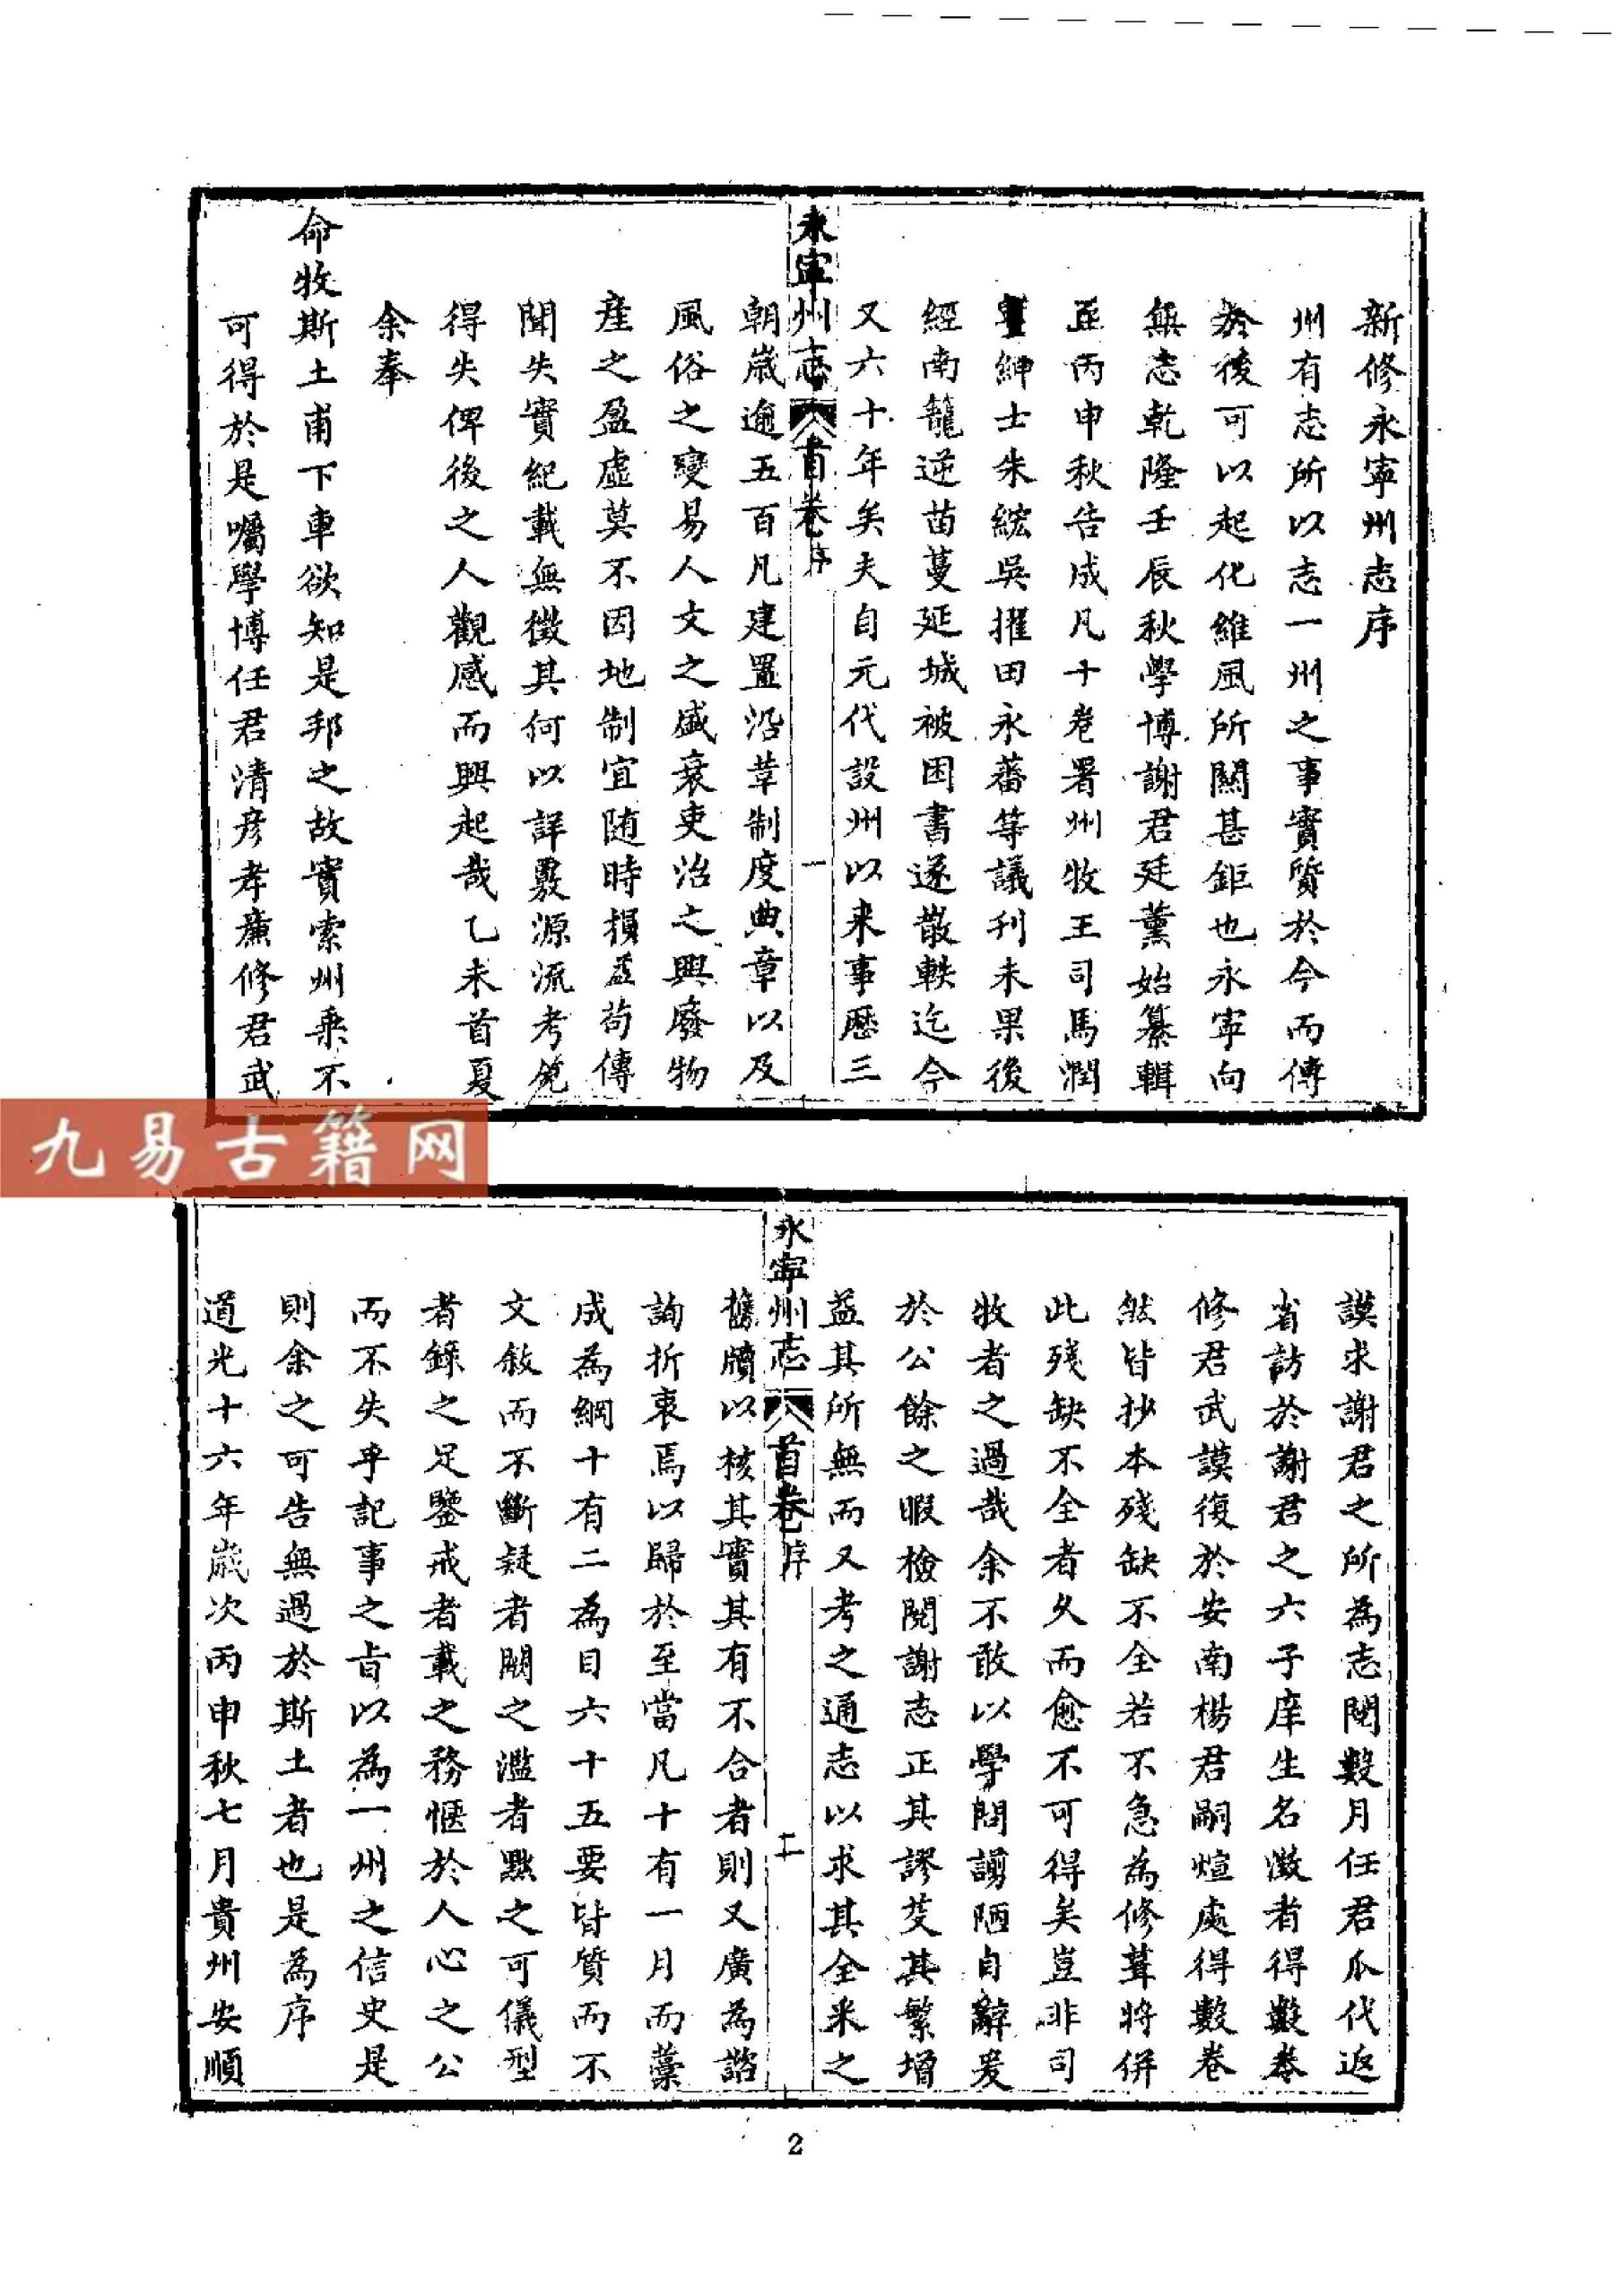 新修永寧州志序
州有志所以志一州之事實質於今而傳
於後可以起化維風所關甚鉅也永寧向
無志乾隆壬辰秋學博謝君廷薰始纂輯
至丙申秋告成凡十卷署州牧王司馬潤
紳士朱紘吳擢田永蕃等議刊未果後
經南籠逆苗蔓延城被困書遂散軼迄今
又六十年矣夫自元代設州以來事歷三
永寧州志 首卷 序 一
朝歲逾五百凡建置沿革制度典章以及
風俗之變易人文之盛衰吏治之興廢物
產之盈虛莫不因地制宜隨時損益苟傳
聞失實紀載無徵其何以詳覈源流考鏡
得失俾後之人觀感而興起哉乙未首夏
余奉
命牧斯土甫下車欲知是邦之故實索州乘不
可得於是囑學博任君清彥孝廉修君武
九易古籍网
謨求謝君之所為志閱數月任君瓜代返
省訪於謝君之六子庠生名澂者得數卷
修君武謨復於安南楊君嗣煊處得數卷
然皆抄本殘缺不全若不急為修葺將併
此殘缺不全者久而愈不可得矣豈非司
牧者之過哉余不敢以學問謭陋自辭爰
於公餘之暇檢閱謝志正其謬芟其繁增
益其所無而又考之通志以求其全釆之
永寧州志 首卷 序 二
舊牘以核其實其有不合者則又廣為諮
詢折衷焉以歸於至當凡十有一月而藁
成為綱十有二為目六十五要皆質而不
文敘而不斷疑者闕之濫者點之可儀型
者錄之足鑒戒者載之務愜於人心之公
而不失乎記事之旨以為一州之信史是
則余之可告無過於斯土者也是為序
道光十六年歲次丙申秋七月貴州安順
2